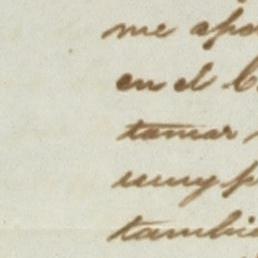 me apo
en el C
tomar
muy p
tambie